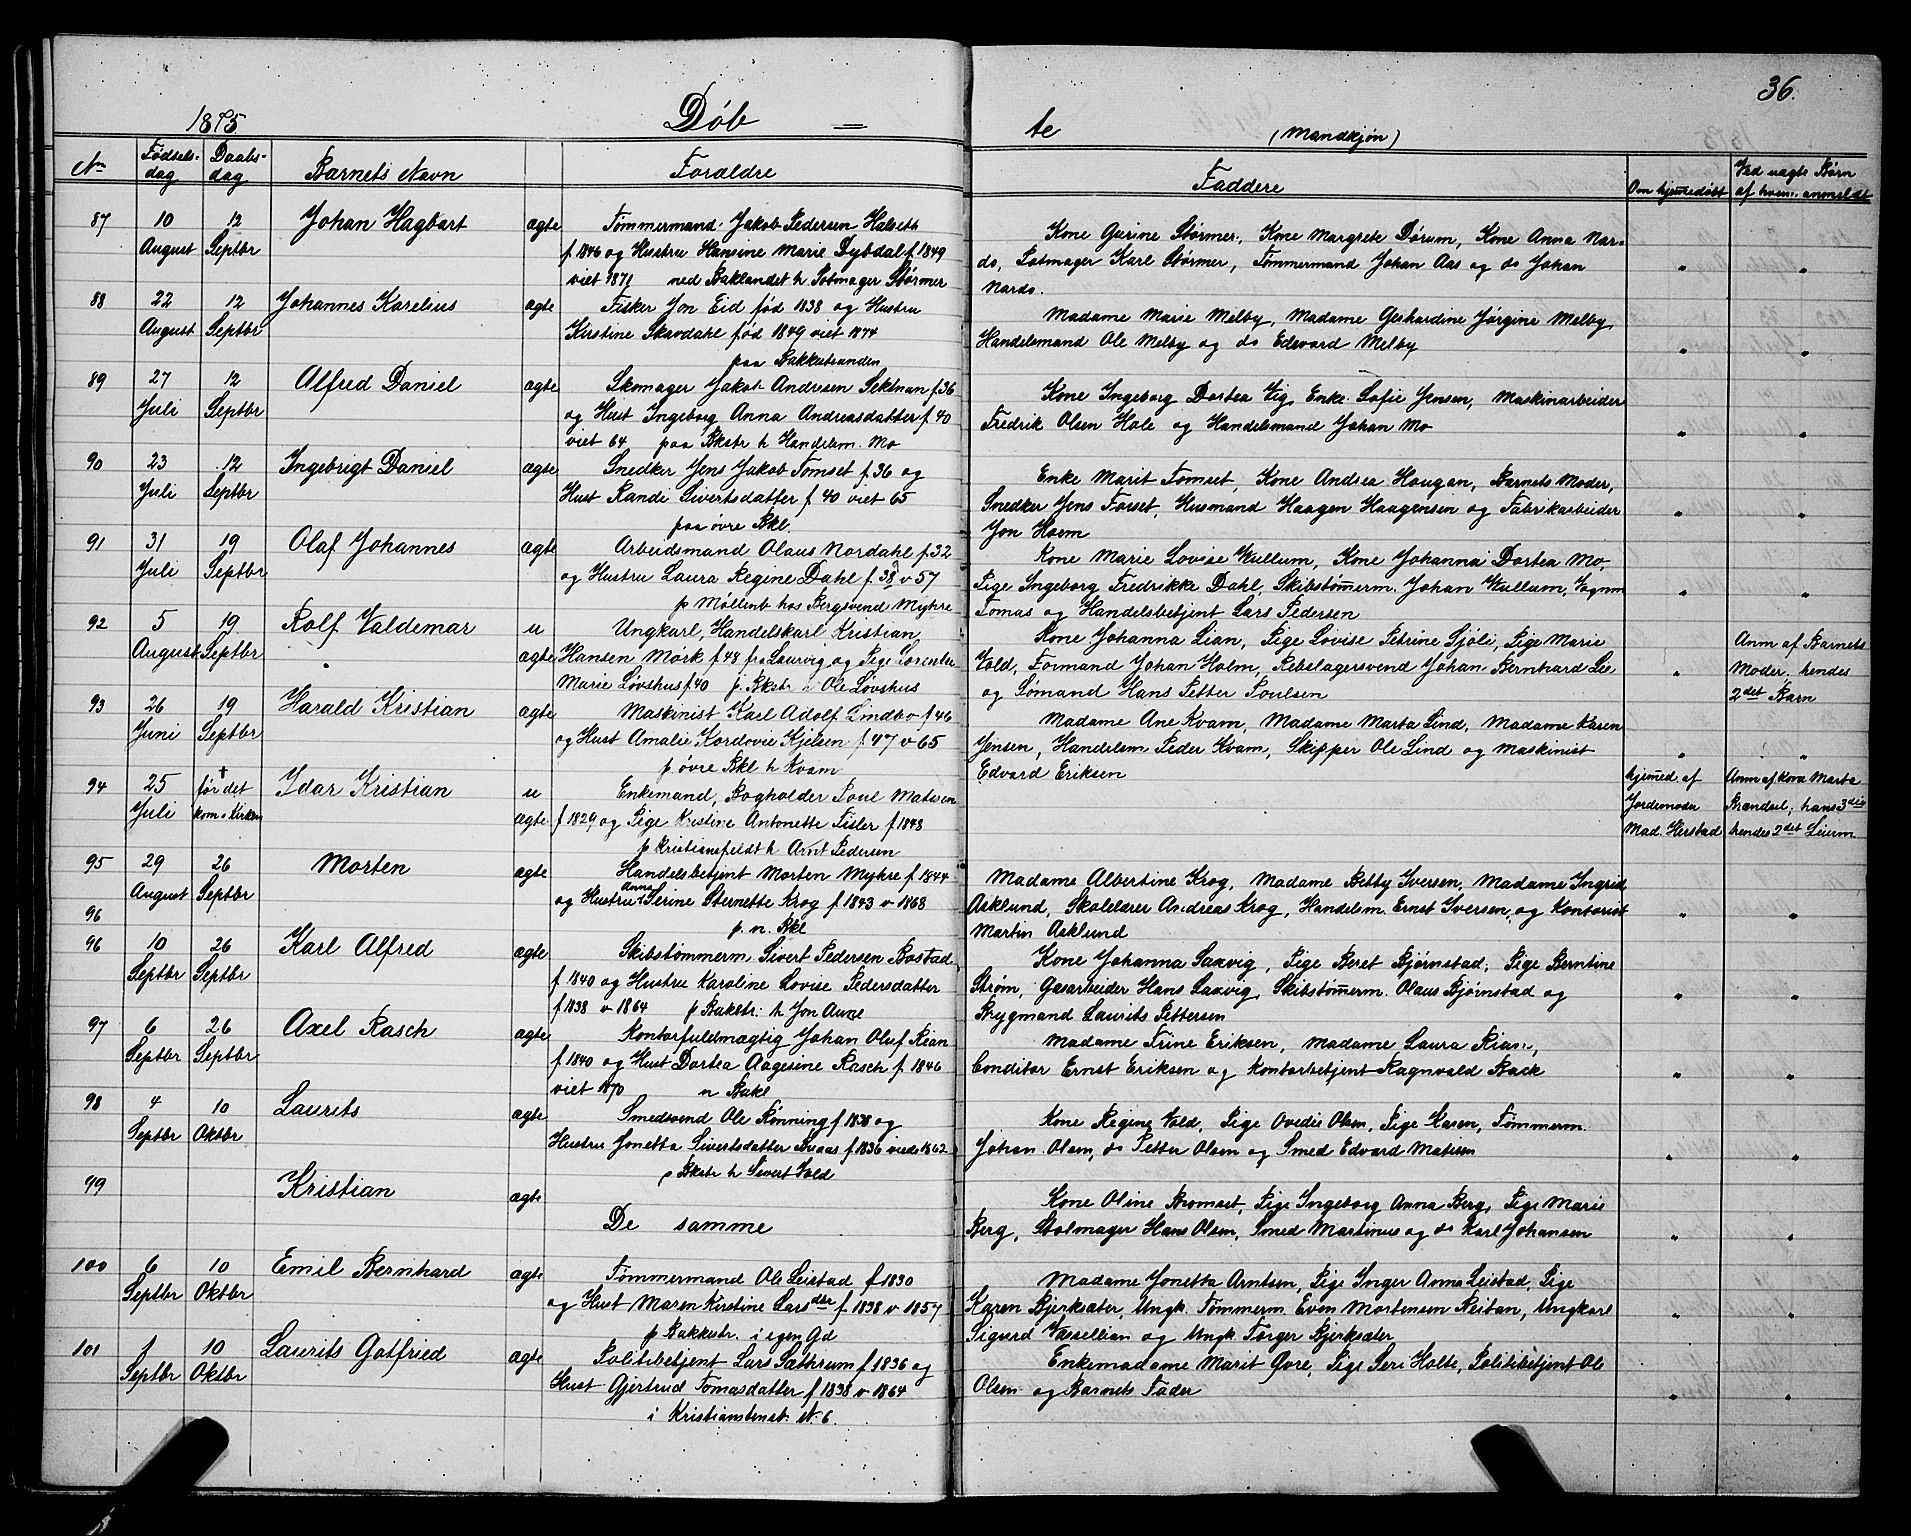 36.
1875 Døb — te (Mandkjøn)
No Fødsels-dag Daabs-dag Barnets Navn Forældre Faddere Om hjemmedøbt Ved uægte Børn af hvem anmeldt
87 10 August 12 Septbr Johan Hagbart ægte Tømmermand Jakob Pedersen Halseth
f 1846 og Hustru Hansine Marie Dybdal f 1849
viet 1871 ned Baklandet h Sotmager Størmer
Kone Gurine Størmer, Kone Margrete Dørum, Kone Anna Nar-
do, Sotmager Karl Størmer, Tømmermand Johan Aas og do Johan
Nardo. " "
88 22 August 12 Septbr Johannes Karelius ægte Fisker Jon Eid fød 1838 og Hustru
Kirstine Skardahl fød 1849 viet 1874
paa Bakkestranden
Madame Marie Melby, Madame Gerhardine Jørgine Melby
Handelsmand Ole Melby og do Edevard Melby " "
89 27 Juli 12 Septbr Alfred Daniel ægte Skomager Jakob Andresen Sektnan f 36
og Hust Ingeborg Anna Andreasdatter f 40
viet 64 paa Bkstr h Handelsm. Mo
Kone Ingeborg Dortea Vig, Enke Sofie Jensen, Maskinarbeider
Fredrik Olsen Hole og Handelsmand Johan Mo " "
90 23 Juli 12 Septbr Ingebrigt Daniel ægte Snedker Jens Jakob Tømset f. 36 og
Hust Randi Sivertsdatter f 40 viet 65
paa øvre Bkl
Enke Marit Tømset, Kone Andrea Haugan, Barnets Moder,
Snedker Jens Forset, Husmand Haagen Haagensen og Fabrikarbeider
Jon Hoem " "
91 31 Juli 19 Septbr Olaf Johannes ægte Arbeidsmand Olaus Nordahl f 32
og Hustru Laura Regine Dahl f. 38 v 57
p Møllenb hos Bergsvend Myhre
Kone Marie Lovise Wullum, Kone Johanna Dortea Mo,
Pige Ingeborg Fredrikke Dahl, Skibstømerm. Johan Wullum, Vognm
Tomas og Handelsbetjent Lars Pedersen " "
92 5 August 19 Septbr Rolf Valdemar u ægte Ungkarl, Handelskarl Kristian
Hansen Mørk f 48 fra Laurvig og Pige Lorentse
Marie Løvshus f 40 p. Bkstr h Ole Løvshus
Kone Johanna Lian, Pige Lovise Petrine Sjøli, Pige Marie
Vold, Formand Johan Holm, Rebslagersvend Johan Bernhard Lie
og Sømand Hans Petter Poulsen "
Anm af Barnets
Moder, hendes
2det Barn
93 26 Juni 19 Septbr Harald Kristian ægte Maskinist Karl Adolf Lindbo f 46
og Hust Amalie Kordovie Kjelsen f 47 v 65
p øvre Bkl h Kvam
Madame Ane Kvam, Madame Marta Lind, Madame Karen
Jensen, Handelsm Peder Kvam, Skipper Ole Lind og Maskinist
Edvard Eriksen " "
94 25 Juli † før det kom i Kirken Idar Kristian u ægte Enkemand, Bogholder Poul Matisen
f 1829 og Pige Kristine Antonette Pisler f 1848
p Kristiansfeldt h Arnt Pedersen
hjemmed af
Jordemoder
Mad. Herstad
Anm af Kone Marta
Brændsel, hans 3die
hendes 2det Leierm
95 29 August 26 Septbr Morten ægte Handelsbetjent Morten Myhre f 1844
og Hustru Anna Serine Sternette Krog f 1843 v 1868
p. n. Bkl
Madame Albertine Krog, Madame Betty Iversen, Madame Ingrid
Asklund, Skolelærer Andreas Krog, Handelsm. Ernst Iversen, og Kontorist
Martin Asklund " "
96
96 10 Septbr 26 Septbr Karl Alfred ægte Skibstømmerm. Sivert Pedersen Bostad
f 1840 og Hustru Karoline Lovise Pedersdatter
f 1838 v 1864 p Bakstr. h Jon Aune
Kone Johanna Saxvig, Pige Beret Bjørnstad, Pige Berntine
Strøm, Gasarbeider Hans Saxvig, Skibstømerm. Olaus Bjørnstad og
Brygmand Laurits Pettersen " "
97 6 Septbr 26 Septbr Axel Rasch ægte Kontorfuldmægtig Johan Oluf Rian
f 1840 og Hust Dortea Aagesine Rasch f. 1846
viet 1870 n Bakl
Madame Trine Eriksen, Madame Laura Rian,
Conditor Ernst Eriksen og Kontorbetjent Ragnvald Back " "
98 4 Septbr 10 Oktbr Laurits ægte Smedsvend Ole Rønning f 1838 og
Hustru Jonetta Sivertsdatter Buaas f 1836 viede 1862
p Bkstr h Sivert Vold
Kone Regine Vold, Pige Ovedie Olsen, Pige Karen, Tømmerm.
Johan Olsen, do Petter Olsen og Smed Edvard Matisen " "
99 Kristian ægte De samme
Kone Oline Bromset, Pige Ingeborg Anna Berg, Pige Marie
Berg, Stolmager Hans Olsen, Smed Martinus og do Karl Johansen " "
100 6 Septbr 10 Oktbr Emil Bernhard ægte Tømmermand Ole Leistad f 1830
og Hust Maren Kirstine Larsdtr f. 1838 v 1857
p Bakkestr. i egen Gd
Madame Jonetta Arntsen, Pige Inger Anna Leistad, Pige
Karen Bjerksæter, Ungk. Tømmerm. Even Mortensen Reitan, Ungkarl
Sigurd Vassellian og Ungk Torger Bjerksæter " "
101 1 Septbr 10 Oktbr Laurits Gotfried ægte Politibetjent Lars Sæthrum f 1836 og
Hust Gjertrud Tomasdatter f 1838 v 1864
i Kristianstensb. N. 6.
Enkemadame Marit Øvre, Pige Seri Holte, Politibetjent Ole
Olsen og Barnets Fader " "